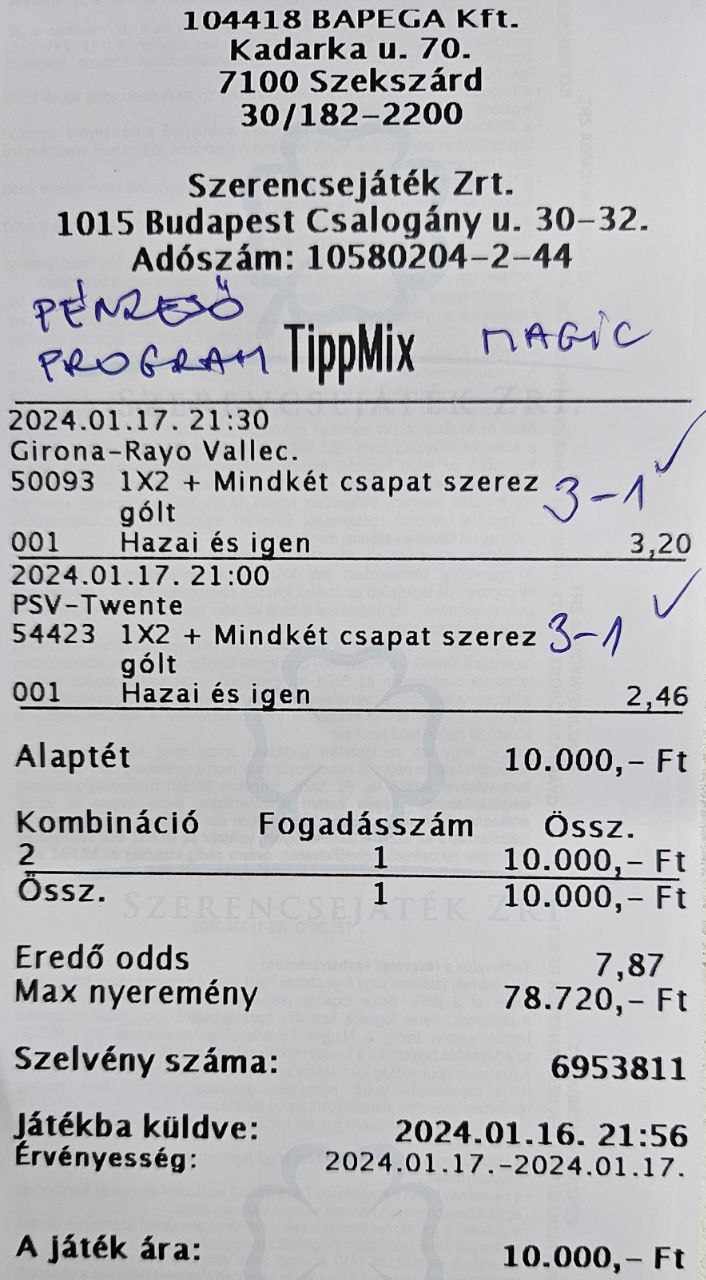 104418 BAPEGA Kft.
Kadarka u. 70.
7100 Szekszárd
30/182-2200
Szerencsejáték Zrt.
1015 Budapest Csalogány u. 30-32.
Adószám: 10580204-2-44
PÉNZESŐ
PROGRAM TippMix MAGIC
SZERENCSEJÁTÉK ZRT.
2024.01.17. 21:30
Girona-Rayo Vallec.
50093 1X2 + Mindkét csapat szerez 3-1
gólt
001 Hazai és igen 3,20
2024.01.17. 21:00
PSV-Twente
54423 1X2 + Mindkét csapat szerez 3-1
gólt
001 Hazai és igen 2,46
Alaptét 10.000,- Ft
Kombináció Fogadásszám Össz.
2 1 10.000,- Ft
Össz. 1 10.000,- Ft
SZERENCSEJÁTÉK ZRT
Eredő odds 7,87
Max nyeremény 78.720,- Ft
Szelvény száma: 6953811
Játékba küldve: 2024.01.16. 21:56
Érvényesség: 2024.01.17.-2024.01.17.
A játék ára: 10.000,- Ft